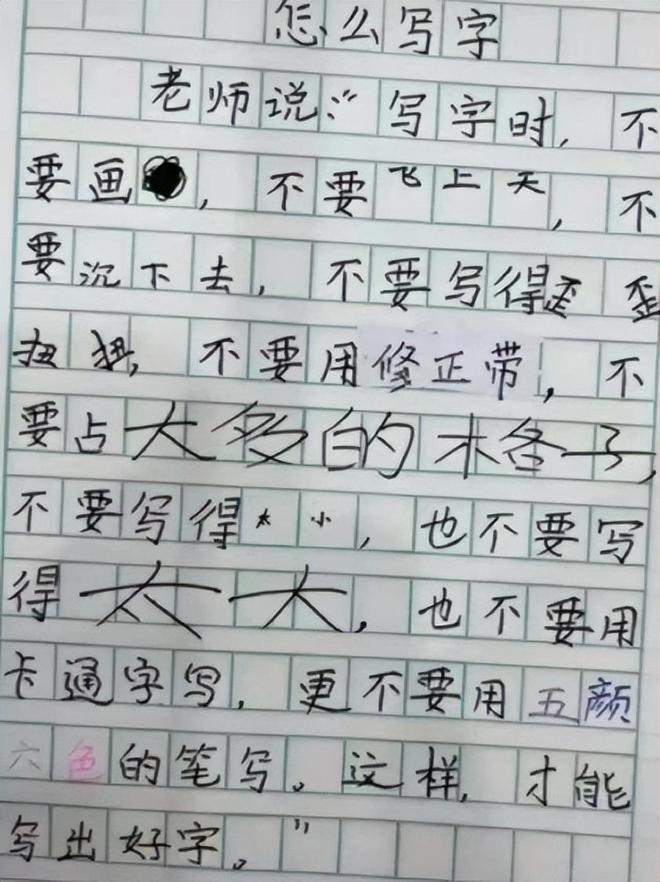 怎么写字
老师说:“写字时,不
要画●,不要飞上天,不
要沉下去,不要写得歪歪
扭扭,不要用修正带,不
要占太多的格子,
不要写得太小,也不要写
得太大,也不要用
卡通字写,更不要用五颜
六色的笔写。这样,才能
写出好字。”